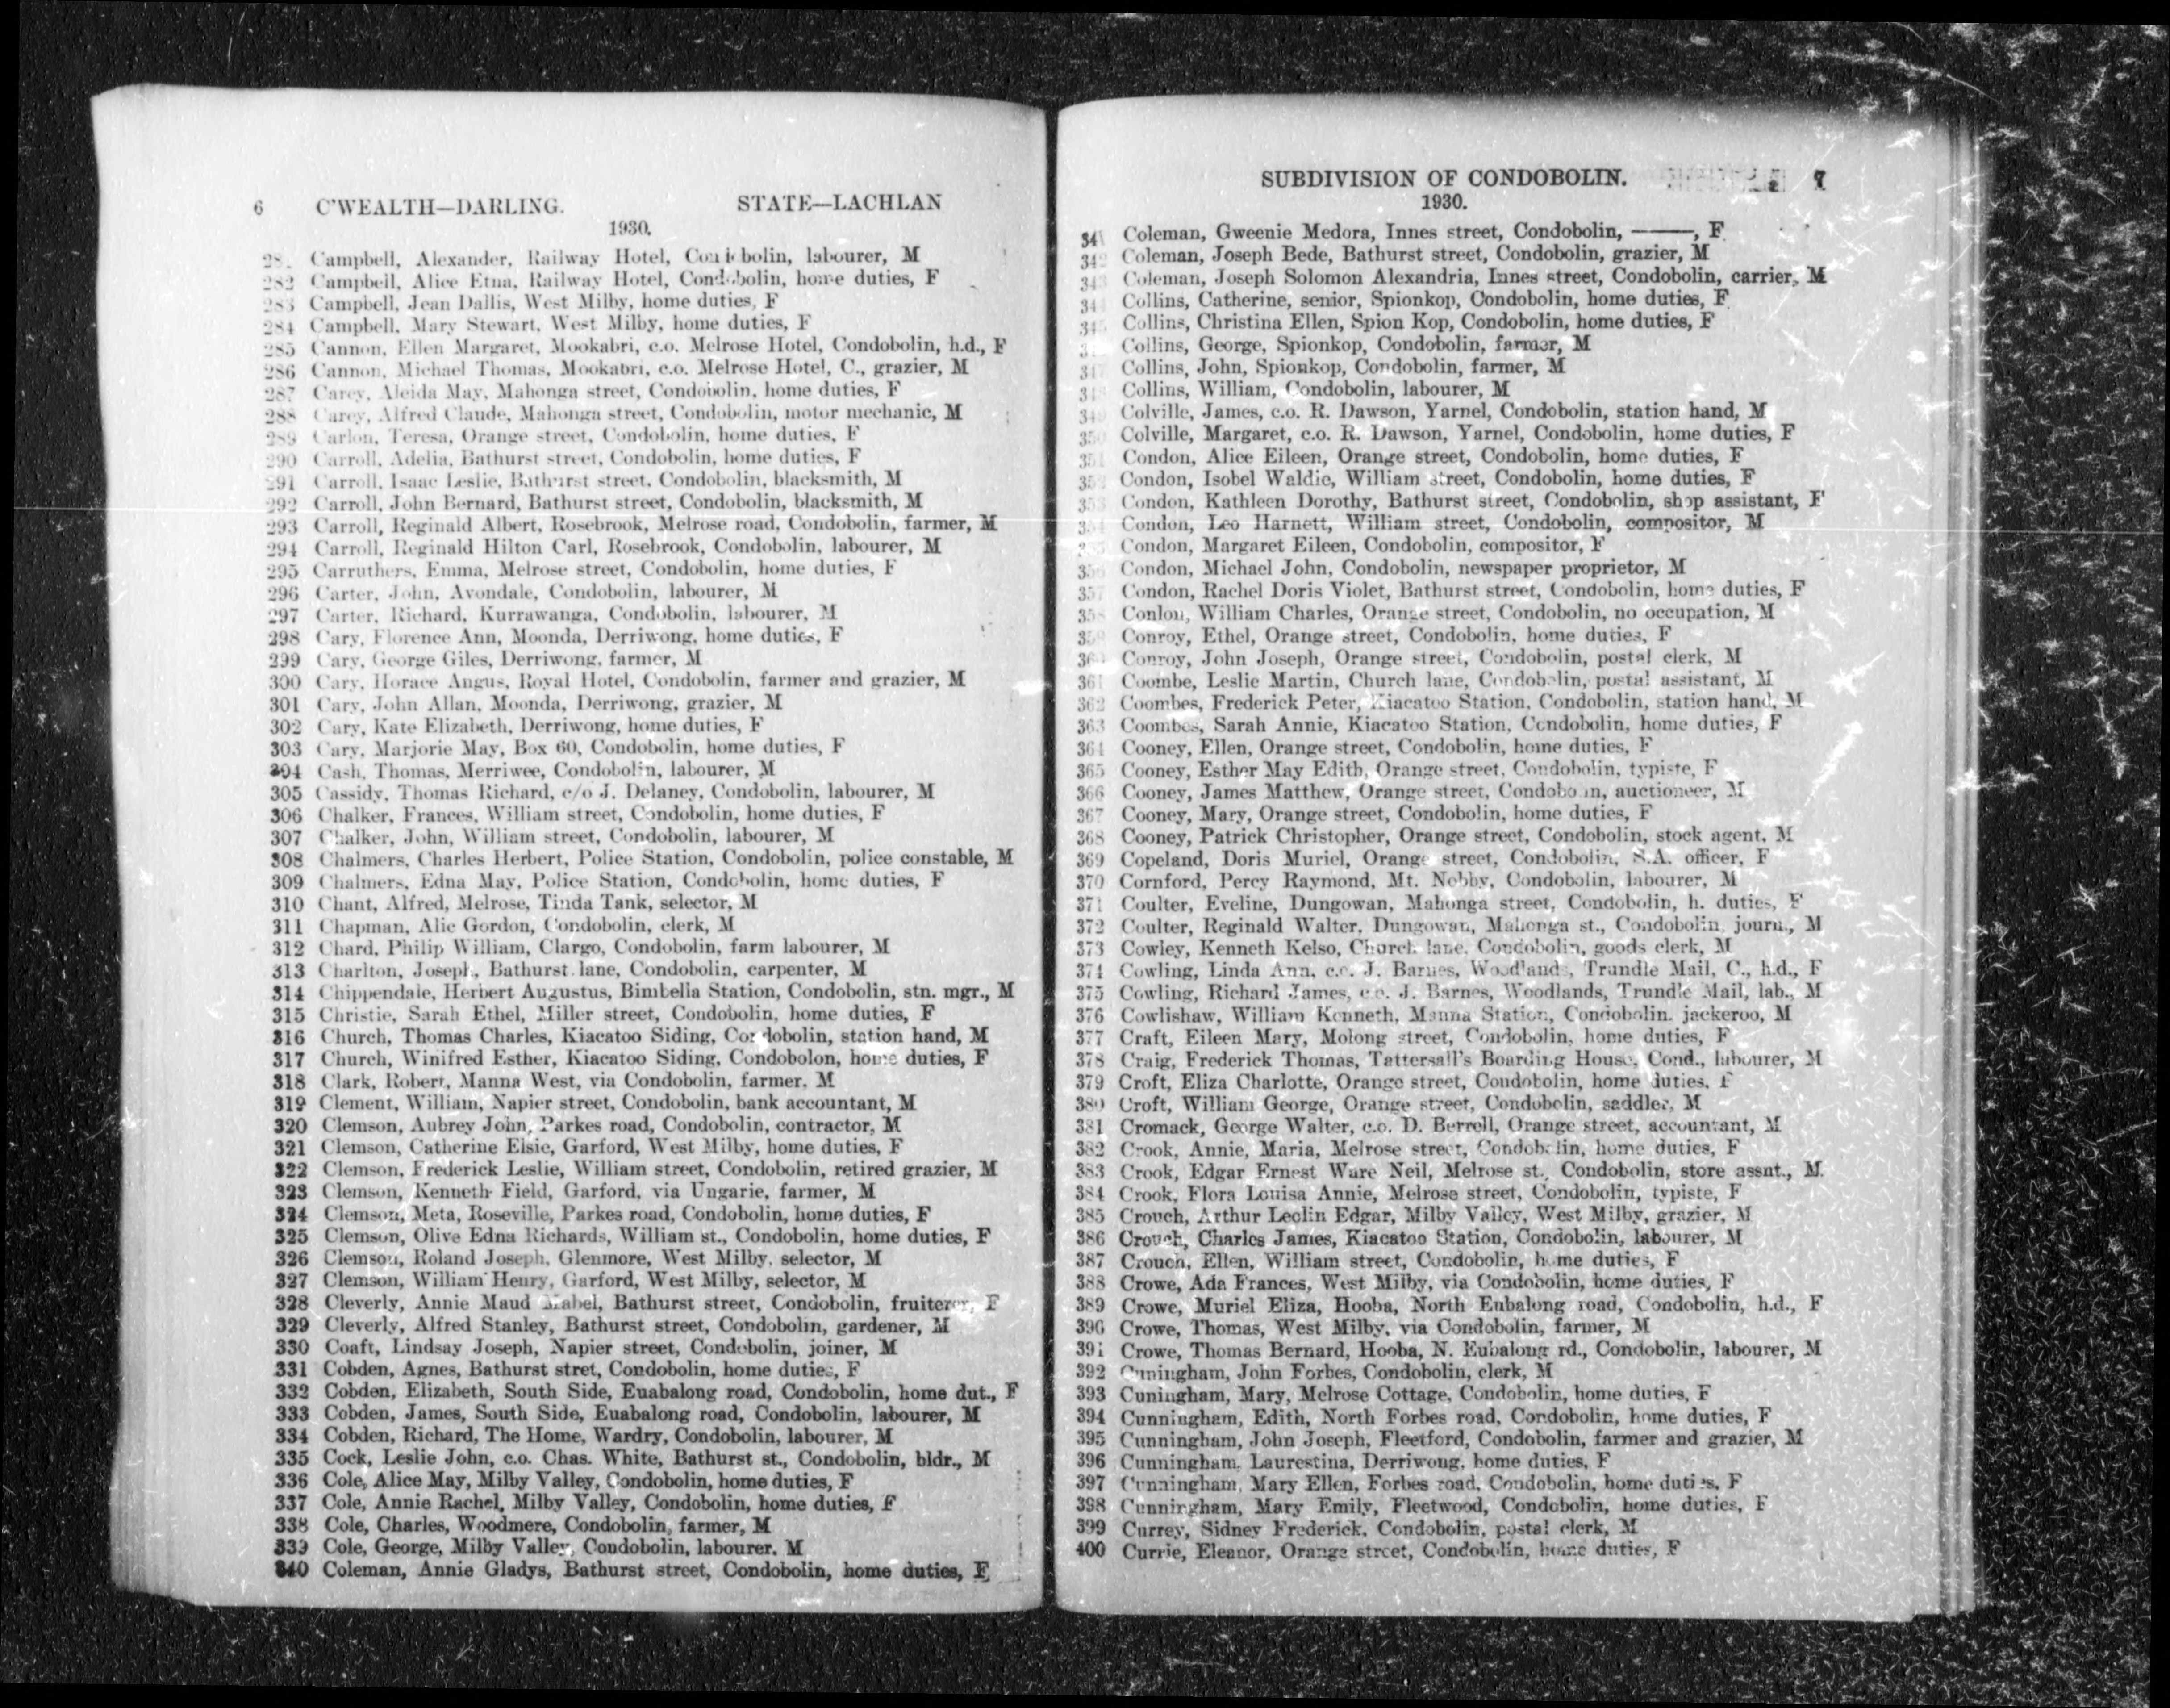 6 C'WEALTH—DARLING. STATE—LACHLAN
1930.
Campbell, Alexander, Railway Hotel, Condobolin, labourer, M
282 Campbell, Alice Etna, Railway Hotel, Condobolin, home duties, F
283 Campbell, Jean Dallis, West Milby, home duties, F
284 Campbell, Mary Stewart, West Milby, home duties, F
285 Cannon, Ellen Margaret, Mookabri, c.o. Melrose Hotel, Condobolin, h.d., F
286 Cannon, Michael Thomas, Mookabri, c.o. Melrose Hotel, C., grazier, M
287 Carey, Aleida May, Mahonga street, Condobolin, home duties, F
288 Carey, Alfred Claude, Mahonga street, Condobolin, motor mechanic, M
289 Carlon, Teresa, Orange street, Condobolin, home duties, F
290 Carroll, Adelia, Bathurst street, Condobolin, home duties, F
291 Carroll, Isaac Leslie, Bathurst street, Condobolin, blacksmith, M
292 Carroll, John Bernard, Bathurst street, Condobolin, blacksmith, M
293 Carroll, Reginald Albert, Rosebrook, Melrose road, Condobolin, farmer, M
294 Carroll, Reginald Hilton Carl, Rosebrook, Condobolin, labourer, M
295 Carruthers, Emma, Melrose street, Condobolin, home duties, F
296 Carter, John, Avondale, Condobolin, labourer, M
297 Carter, Richard, Kurrawanga, Condobolin, labourer, M
298 Cary, Florence Ann, Moonda, Derriwong, home duties, F
299 Cary, George Giles, Derriwong, farmer, M
300 Cary, Horace Angus, Royal Hotel, Condobolin, farmer and grazier, M
301 Cary, John Allan, Moonda, Derriwong, grazier, M
302 Cary, Kate Elizabeth, Derriwong, home duties, F
303 Cary, Marjorie May, Box 60, Condobolin, home duties, F
304 Cash, Thomas, Merriwee, Condobolin, labourer, M
305 Cassidy, Thomas Richard, c/o J. Delaney, Condobolin, labourer, M
306 Chalker, Frances, William street, Condobolin, home duties, F
307 Chalker, John, William street, Condobolin, labourer, M
308 Chalmers, Charles Herbert, Police Station, Condobolin, police constable, M
309 Chalmers, Edna May, Police Station, Condobolin, home duties, F
310 Chant, Alfred, Melrose, Tinda Tank, selector, M
311 Chapman, Alic Gordon, Condobolin, clerk, M
312 Chard, Philip William, Clargo, Condobolin, farm labourer, M
313 Charlton, Joseph, Bathurst lane, Condobolin, carpenter, M
314 Chippendale, Herbert Augustus, Bimbella Station, Condobolin, stn. mgr., M
315 Christie, Sarah Ethel, Miller street, Condobolin, home duties, F
316 Church, Thomas Charles, Kiacatoo Siding, Condobolin, station hand, M
317 Church, Winifred Esther, Kiacatoo Siding, Condobolon, home duties, F
318 Clark, Robert, Manna West, via Condobolin, farmer, M
319 Clement, William, Napier street, Condobolin, bank accountant, M
320 Clemson, Aubrey John, Parkes road, Condobolin, contractor, M
321 Clemson, Catherine Elsie, Garford, West Milby, home duties, F
322 Clemson, Frederick Leslie, William street, Condobolin, retired grazier, M
323 Clemson, Kenneth Field, Garford, via Ungarie, farmer, M
324 Clemson, Meta, Roseville, Parkes road, Condobolin, home duties, F
325 Clemson, Olive Edna Richards, William st., Condobolin, home duties, F
326 Clemson, Roland Joseph, Glenmore, West Milby, selector, M
327 Clemson, William Henry, Garford, West Milby, selector, M
328 Cleverly, Annie Maud Mabel, Bathurst street, Condobolin, fruiterer, F
329 Cleverly, Alfred Stanley, Bathurst street, Condobolin, gardener, M
330 Coaft, Lindsay Joseph, Napier street, Condobolin, joiner, M
331 Cobden, Agnes, Bathurst stret, Condobolin, home duties, F
332 Cobden, Elizabeth, South Side, Euabalong road, Condobolin, home dut., F
333 Cobden, James, South Side, Euabalong road, Condobolin, labourer, M
334 Cobden, Richard, The Home, Wardry, Condobolin, labourer, M
335 Cock, Leslie John, c.o. Chas. White, Bathurst st., Condobolin, bldr., M
336 Cole, Alice May, Milby Valley, Condobolin, home duties, F
337 Cole, Annie Rachel, Milby Valley, Condobolin, home duties, F
338 Cole, Charles, Woodmere, Condobolin, farmer, M
339 Cole, George, Milby Valley, Condobolin, labourer. M
340 Coleman, Annie Gladys, Bathurst street, Condobolin, home duties, F
SUBDIVISION OF CONDOBOLIN. 7
1930.
341 Coleman, Gweenie Medora, Innes street, Condobolin, ———, F
342 Coleman, Joseph Bede, Bathurst street, Condobolin, grazier, M
343 Coleman, Joseph Solomon Alexandria, Innes street, Condobolin, carrier, M
344 Collins, Catherine, senior, Spionkop, Condobolin, home duties, F
345 Collins, Christina Ellen, Spion Kop, Condobolin, home duties, F
Collins, George, Spionkop, Condobolin, farmer, M
347 Collins, John, Spionkop, Condobolin, farmer, M
348 Collins, William, Condobolin, labourer, M
349 Colville, James, c.o. R. Dawson, Yarnel, Condobolin, station hand, M
350 Colville, Margaret, c.o. R. Dawson, Yarnel, Condobolin, home duties, F
351 Condon, Alice Eileen, Orange street, Condobolin, home duties, F
352 Condon, Isobel Waldie, William street, Condobolin, home duties, F
353 Condon, Kathleen Dorothy, Bathurst street, Condobolin, shop assistant, F
354 Condon, Leo Harnett, William street, Condobolin, compositor, M
Condon, Margaret Eileen, Condobolin, compositor, F
356 Condon, Michael John, Condobolin, newspaper proprietor, M
357 Condon, Rachel Doris Violet, Bathurst street, Condobolin, home duties, F
358 Conlon, William Charles, Orange street, Condobolin, no occupation, M
359 Conroy, Ethel, Orange street, Condobolin, home duties, F
360 Conroy, John Joseph, Orange street, Condobolin, postal clerk, M
361 Coombe, Leslie Martin, Church lane, Condobolin, postal assistant, M
362 Coombes, Frederick Peter, Kiacatoo Station, Condobolin, station hand, M
363 Coombes, Sarah Annie, Kiacatoo Station, Condobolin, home duties, F
364 Cooney, Ellen, Orange street, Condobolin, home duties, F
365 Cooney, Esther May Edith, Orange street, Condobolin, typiste, F
366 Cooney, James Matthew, Orange street, Condobolin, auctioneer, M
367 Cooney, Mary, Orange street, Condobolin, home duties, F
368 Cooney, Patrick Christopher, Orange street, Condobolin, stock agent, M
369 Copeland, Doris Muriel, Orange street, Condobolin, S.A. officer, F
370 Cornford, Percy Raymond, Mt. Nobby, Condobolin, labourer, M
371 Coulter, Eveline, Dungowan, Mahonga street, Condobolin, h. duties, F
372 Coulter, Reginald Walter, Dungowan, Mahonga st., Condobolin, journ., M
373 Cowley, Kenneth Kelso, Church lane, Condobolin, goods clerk, M
374 Cowling, Linda Ann, c.o. J. Barnes, Woodlands, Trundle Mail, C., h.d., F
375 Cowling, Richard James, c.o. J. Barnes, Woodlands, Trundle Mail, lab., M
376 Cowlishaw, William Kenneth, Manna Station, Condobolin, jackeroo, M
377 Craft, Eileen Mary, Molong street, Condobolin, home duties, F
378 Craig, Frederick Thomas, Tattersall's Boarding House, Cond., labourer, M
379 Croft, Eliza Charlotte, Orange street, Condobolin, home duties, F
380 Croft, William George, Orange street, Condobolin, saddler, M
381 Cromack, George Walter, c.o. D. Berrell, Orange street, accountant, M
382 Crook, Annie, Maria, Melrose street, Condobolin, home duties, F
383 Crook, Edgar Ernest Ware Neil, Melrose st., Condobolin, store assnt., M.
384 Crook, Flora Louisa Annie, Melrose street, Condobolin, typiste, F
385 Crouch, Arthur Leolin Edgar, Milby Valley, West Milby, grazier, M
386 Crouch, Charles James, Kiacatoo Station, Condobolin, labourer, M
387 Crouch, Ellen, William street, Condobolin, home duties, F
388 Crowe, Ada Frances, West Milby, via Condobolin, home duties, F
389 Crowe, Muriel Eliza, Hooba, North Eubalong road, Condobolin, h.d., F
390 Crowe, Thomas, West Milby, via Condobolin, farmer, M
391 Crowe, Thomas Bernard, Hooba, N. Eubalong rd., Condobolin, labourer, M
392 Cuningham, John Forbes, Condobolin, clerk, M
393 Cuningham, Mary, Melrose Cottage, Condobolin, home duties, F
394 Cunningham, Edith, North Forbes road, Condobolin, home duties, F
395 Cunningham, John Joseph, Fleetford, Condobolin, farmer and grazier, M
396 Cunningham, Laurestina, Derriwong, home duties, F
397 Cunningham, Mary Ellen, Forbes road, Condobolin, home duties, F
398 Cunningham, Mary Emily, Fleetwood, Condobolin, home duties, F
399 Currey, Sidney Frederick, Condobolin, postal clerk, M
400 Currie, Eleanor, Orange street, Condobolin, home duties, F